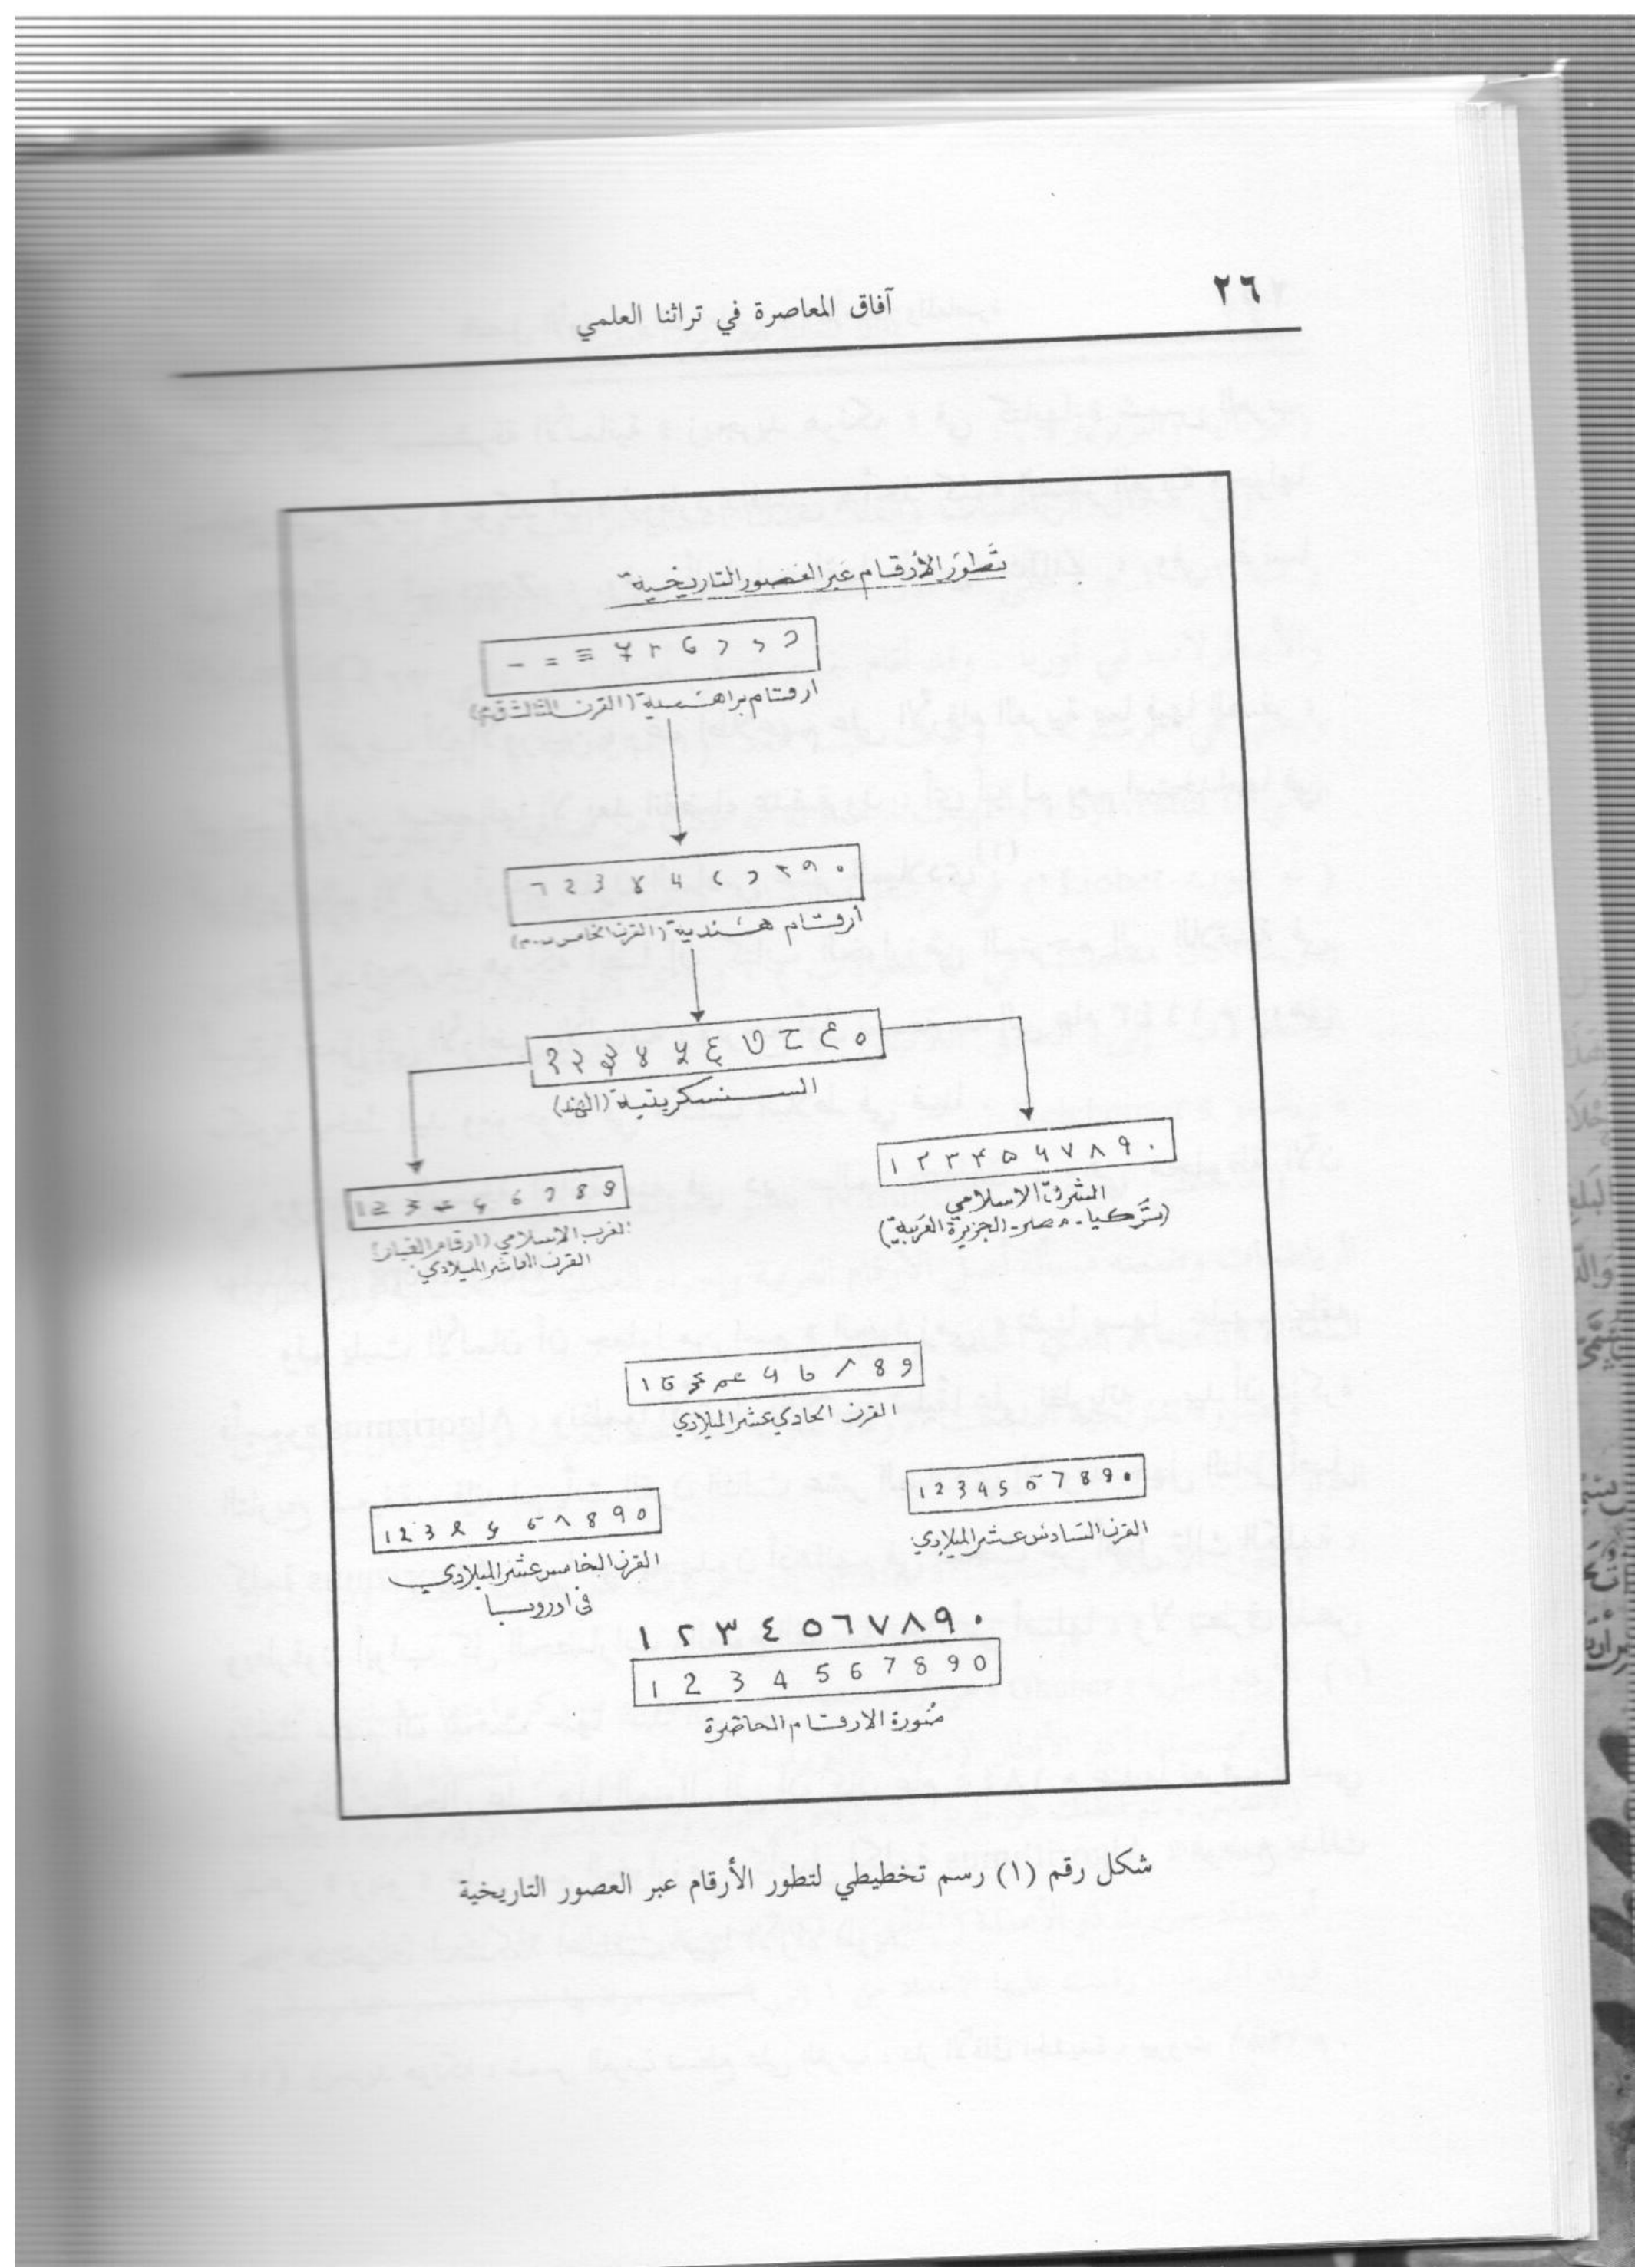 ٢٦
آفاق المعاصرة في تراثنا العلمي
تطور الأرقام عبر العصور التاريخية
أرقام براهمية (القرن الثالث ق م)
أرقام هندية (القرن الخامس ب.م)
السنسكريتية (الهند)
١ ٢ ٣ ۴ ۵ ۶ ٧ ٨ ٩ ٠
الشرق الاسلامي
(تركيا - مصر - الجزيرة العربية)
الغرب الاسلامي (ارقام الغبار)
القرن العاشر الميلادي
القرن الحادي عشر الميلادي
1 2 3 4 5 6 7 8 9 0
القرن السادس عشر الميلادي
القرن الخامس عشر الميلادي
في اوروبا
١ ٢ ٣ ٤ ٥ ٦ ٧ ٨ ٩ ٠
1 2 3 4 5 6 7 8 9 0
صورة الارقام الحاضرة
شكل رقم (١) رسم تخطيطي لتطور الأرقام عبر العصور التاريخية